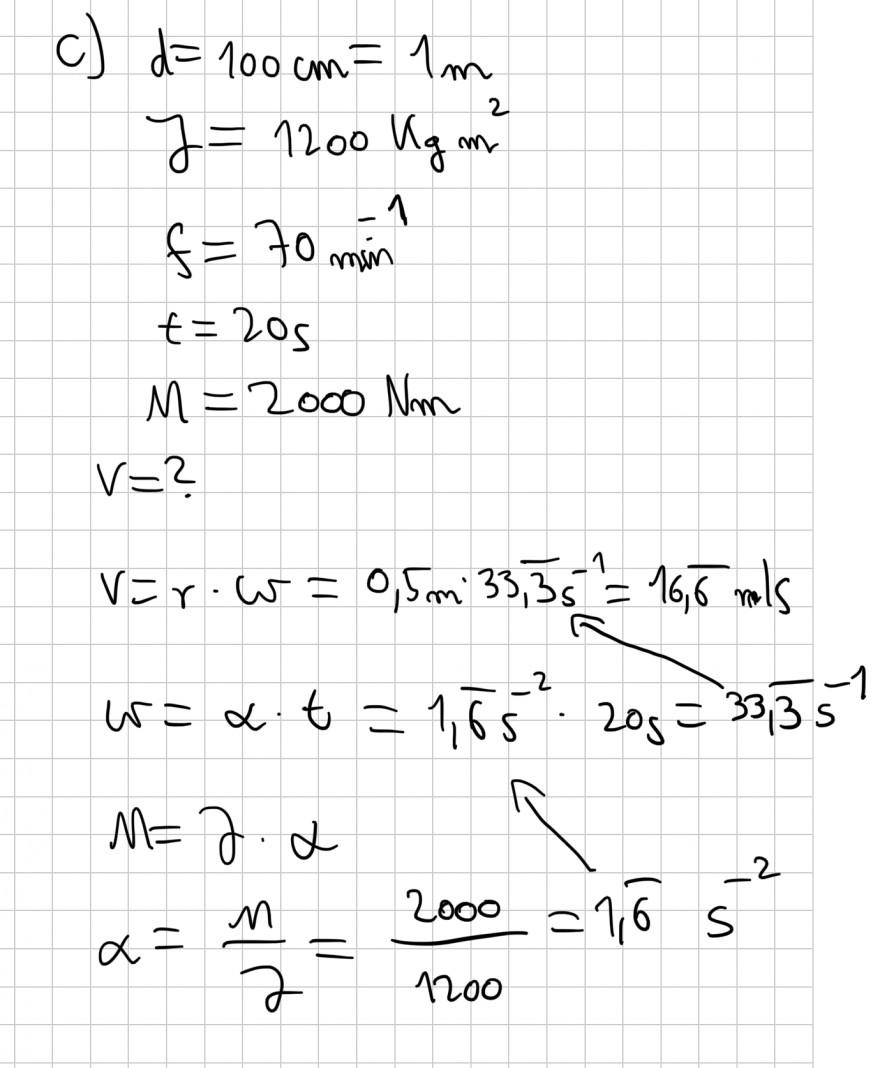 c) d = 100 cm = 1 m
J = 1200 Kg m²
f = 70 min⁻¹
t = 20s
M = 2000 Nm
V = ?
V = r · ω = 0,5m · 33,3̅ s⁻¹ = 16,6̅ m/s
ω = α · t = 1,6̅ s⁻² · 20s = 33,3̅ s⁻¹
M = J · α
α = M/J = 2000/1200 = 1,6̅ s⁻²